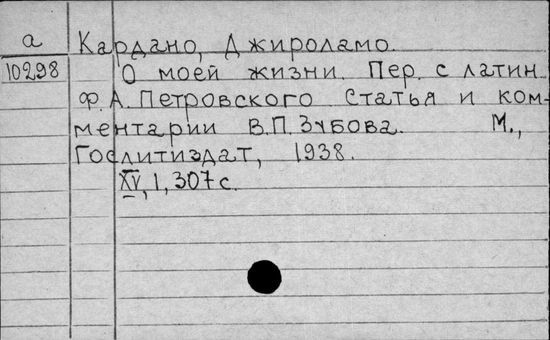 а
10298
Кардано, Джироламо.
О моей жизни. Пер. с латин.
Ф.А. Петровского Статья и ком-
ментарии В.П. Зубова. М.,
Гослитиздат, 1938.
XV, 1, 307 с.